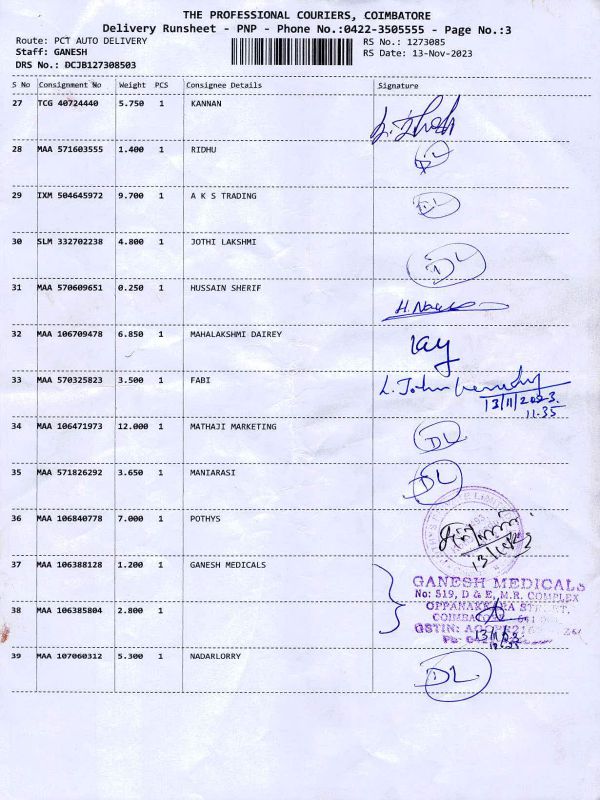 THE PROFESSIONAL COURIERS, COIMBATORE
Delivery Runsheet - PNP - Phone No.:0422-3505555 - Page No.:3
Route: PCT AUTO DELIVERY RS No.: 1273085
Staff: GANESH RS Date: 13-Nov-2023
DRS No.: DCJB127308503
S No Consignment No Weight PCS Consignee Details Signature
27 TCG 40724440 5.750 1 KANNAN
28 MAA 571603555 1.400 1 RIDHU DL
29 IXM 504645972 9.700 1 A K S TRADING DL
30 SLM 332702238 4.800 1 JOTHI LAKSHMI DL
31 MAA 570609651 0.250 1 HUSSAIN SHERIF
32 MAA 106709478 6.850 1 MAHALAKSHMI DAIREY
33 MAA 570325823 3.500 1 FABI L. John Kennedy
13/11/2023.
11.35
34 MAA 106471973 12.000 1 MATHAJI MARKETING DL
35 MAA 571826292 3.650 1 MANIARASI DL
36 MAA 106840778 7.000 1 POTHYS
37 MAA 106388128 1.200 1 GANESH MEDICALS
GANESH MEDICALS
No: 519, D & E, M.R. COMPLEX
38 MAA 106385804 2.800 1
OPPANAKKARA STREET,
COIMBATORE
GSTIN:
39 MAA 107060312 5.300 1 NADARLORRY DL